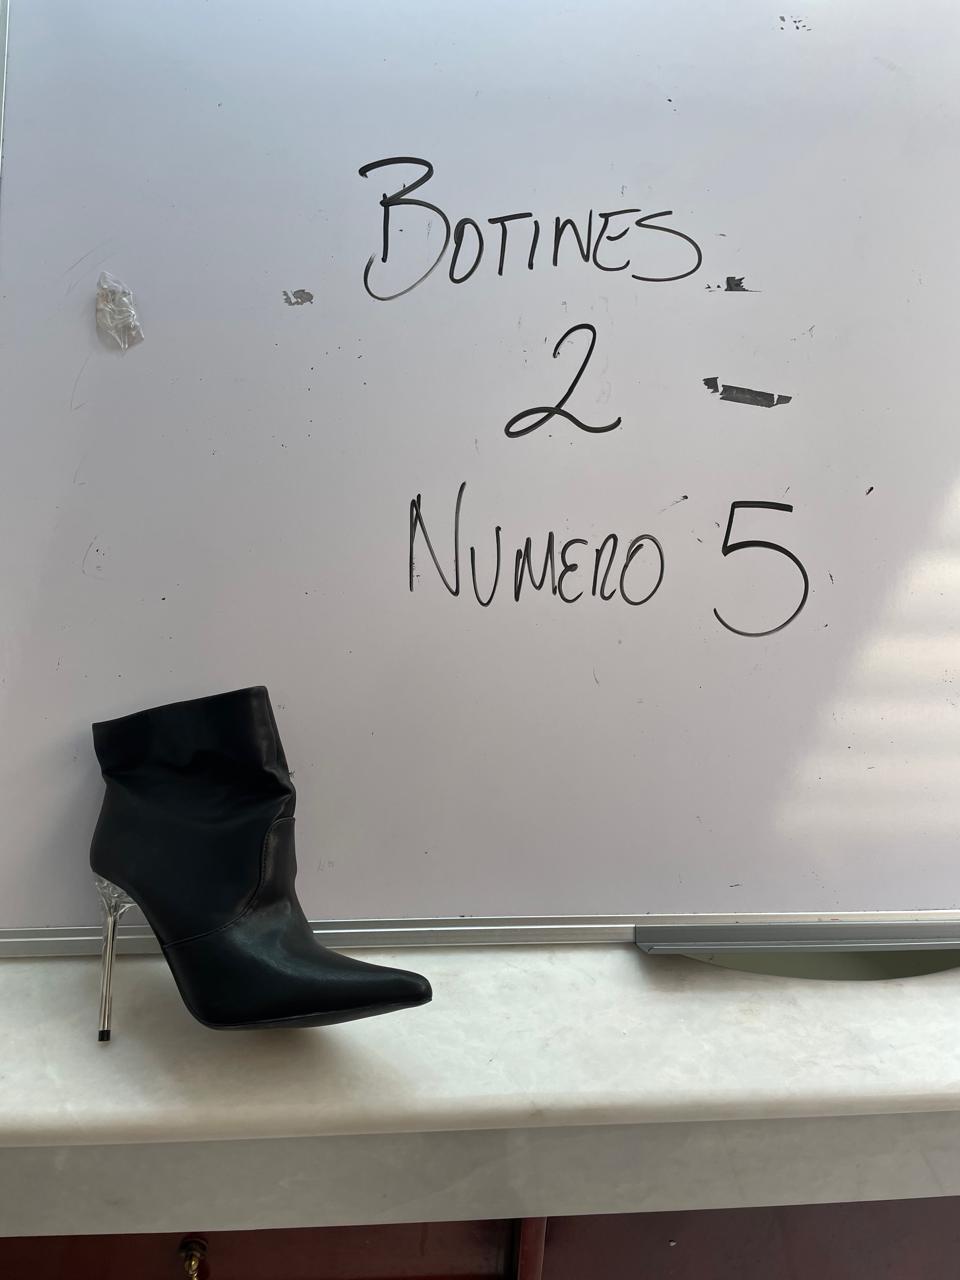 BOTINES
2
NUMERO 5